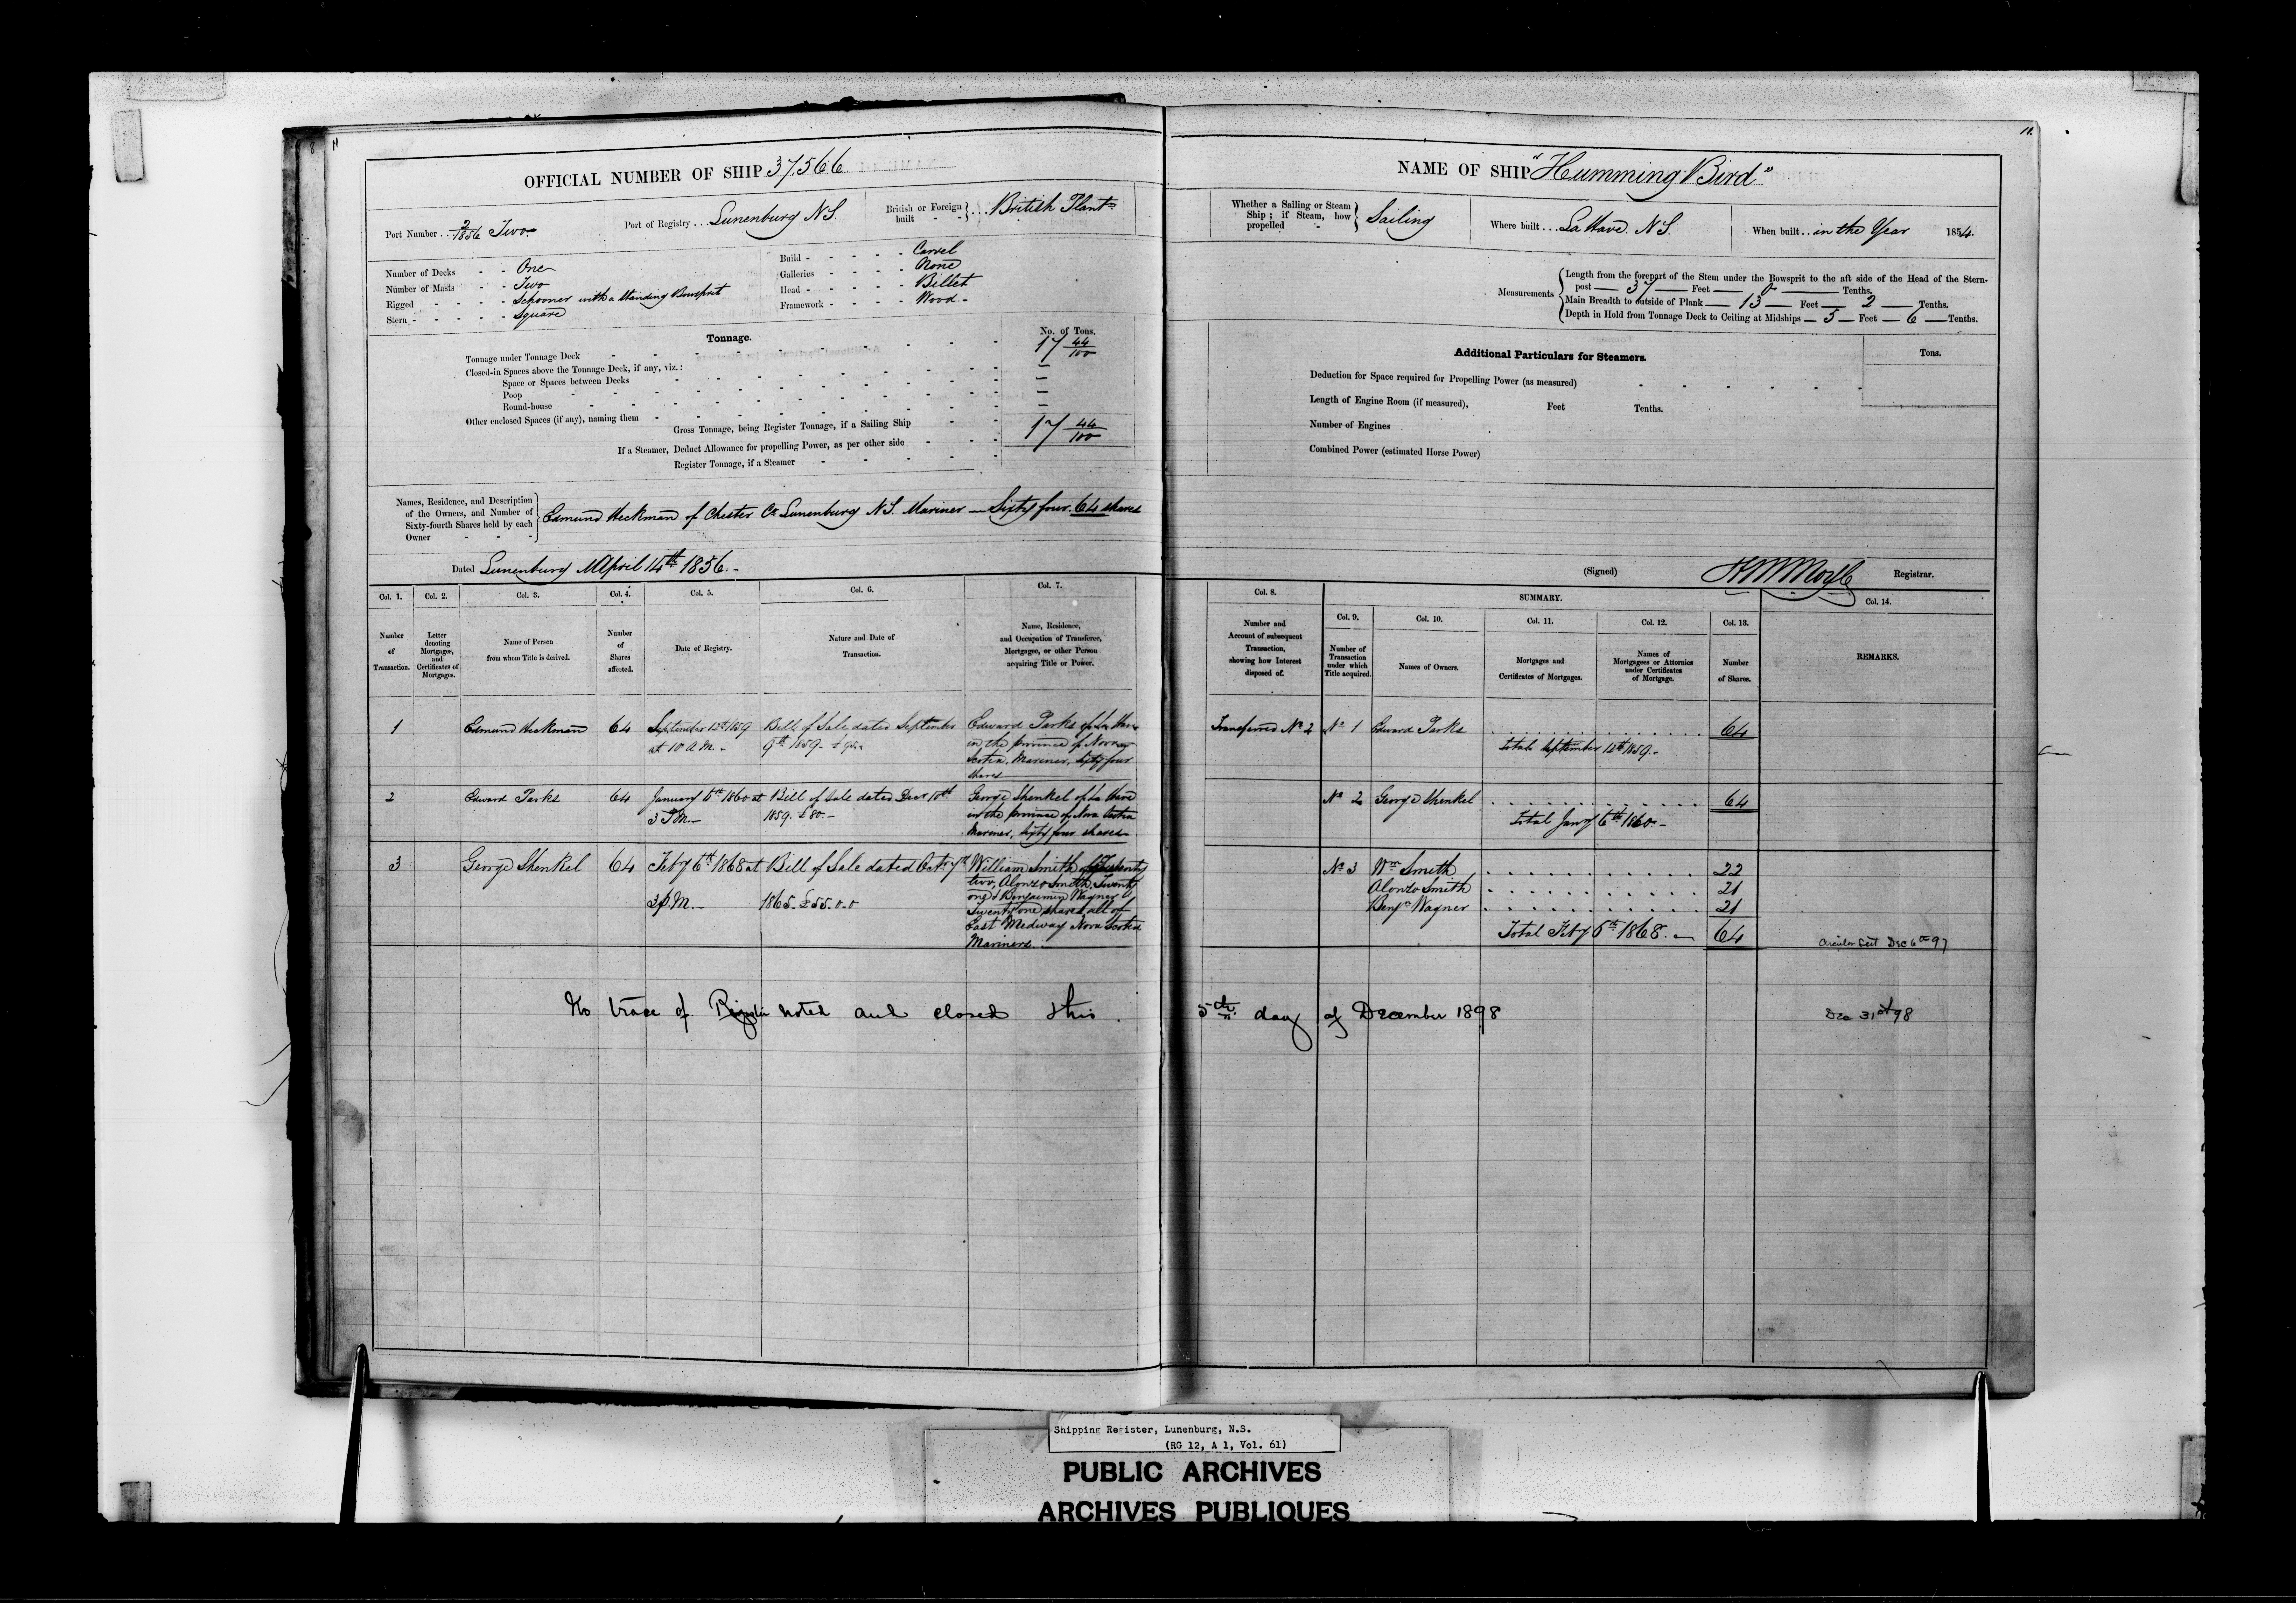 11
OFFICIAL NUMBER OF SHIP 37,566
Port Number . . 2/1856 Two
Port of Registry . . . Lunenburg N.S.
British or Foreign built - - } . . . British Plantn
Number of Decks - - One
Number of Masts - - Two
Rigged - - - - - Schooner with a standing Bowsprit
Stern - - - - - - Square
Build - - - - - - Carvel
Galleries - - - - None
Head - - - - - - Billet
Framework - - - - Wood -
Tonnage.
No. of Tons.
Tonnage under Tonnage Deck - - - 17 44/100
Closed-in Spaces above the Tonnage Deck, if any, viz.: —
Space or Spaces between Decks - - - —
Poop - - - —
Round-house - - - —
Other enclosed Spaces (if any), naming them - - -
Gross Tonnage, being Register Tonnage, if a Sailing Ship - - 17 44/100
If a Steamer, Deduct Allowance for propelling Power, as per other side - - -
Register Tonnage, if a Steamer - - -
Names, Residence, and Description of the Owners, and Number of Sixty-fourth Shares held by each Owner - - - } Edmund Heckman of Chester Co Lunenburg N.S. Mariner — Sixty four 64 shares
Dated Lunenburg April 14th 1856. -
Col. 1. Col. 2. Col. 3. Col. 4. Col. 5. Col. 6. Col. 7.
Number of Transaction.
Letter denoting Mortgages, and Certificates of Mortgages.
Name of Person from whom Title is derived.
Number of Shares affected.
Date of Registry.
Nature and Date of Transaction.
Name, Residence, and Occupation of Transferee, Mortgagee, or other Person acquiring Title or Power.
1 Edmund Heckman 64 September 12th 1859 Bill of Sale dated September Edward Parks of La Have
at 10 A.M. - 9th 1859 - £ 90 in the province of Nova
Scotia, Mariner, sixty four
shares
2 Edward Parks 64 January 6th 1860 at Bill of Sale dated Decr 10th George Shenkel of La Have
3 P.M. - 1859. £80. - in the province of Nova Scotia
Mariner, sixty four shares
3 George Shenkel 64 Feby 6th 1868 at Bill of Sale dated Octr 7th William Smith Twenty
3 P.M. - 1865 - £55-0-0 two, Alonzo Smith Twenty
one & Benjamin Wagner
Twenty one shares all of
East Medway Nova Scotia
Mariners. -
No trace of noted and closed this
11.
NAME OF SHIP "Humming Bird"
Whether a Sailing or Steam Ship; if Steam, how propelled - } Sailing
Where built . . . LaHave N.S.
When built . . in the Year 1854.
Measurements { Length from the forepart of the Stem under the Bowsprit to the aft side of the Head of the Stern-
post — 37 — Feet — 0 — Tenths.
Main Breadth to outside of Plank — 13 — Feet — 2 — Tenths.
Depth in Hold from Tonnage Deck to Ceiling at Midships — 5 — Feet — 6 — Tenths.
Additional Particulars for Steamers.
Tons.
Deduction for Space required for Propelling Power (as measured) - - -
Length of Engine Room (if measured), Feet Tenths.
Number of Engines
Combined Power (estimated Horse Power)
(Signed) Registrar.
Col. 8. SUMMARY. Col. 14.
Col. 9. Col. 10. Col. 11. Col. 12. Col. 13.
Number and Account of subsequent Transaction, showing how Interest disposed of.
Number of Transaction under which Title acquired.
Names of Owners.
Mortgages and Certificates of Mortgages.
Names of Mortgagees or Attornies under Certificates of Mortgage.
Number of Shares.
REMARKS.
Transferred No 2 No 1 Edward Parks 64
Total September 12th 1859. -
No 2 George Shenkel 64
Total Jany 6th 1860. -
No 3 Wm Smith 22
Alonzo Smith 21
Benjn Wagner 21
Total Feby 6th 1868. - 64
Circular Sent Dec 6th 97
5th day of December 1898
Dec 31st 98
Shipping Register, Lunenburg, N.S.
(RG 12, A 1, Vol. 61)
PUBLIC ARCHIVES
ARCHIVES PUBLIQUES